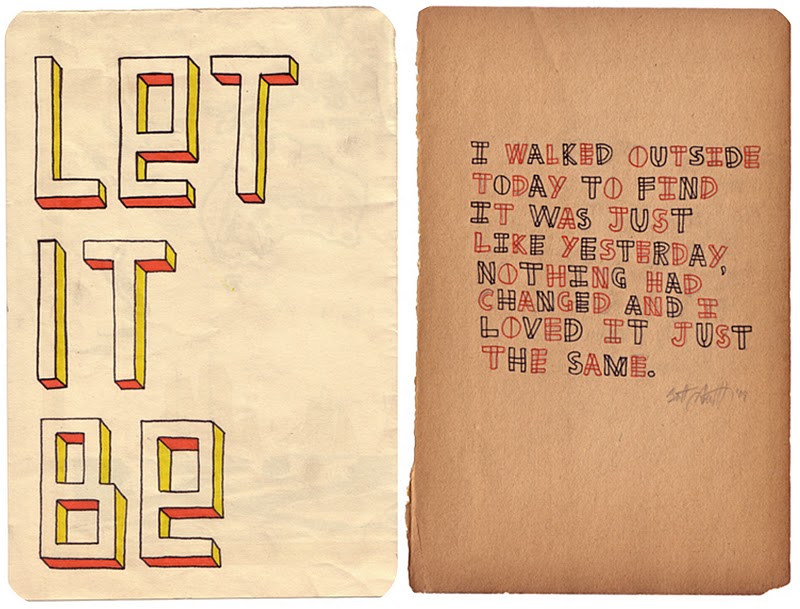 LeT
IT
Be
I WALKED OUTSIDE
TODAY TO FIND
IT WAS JUST
LIKE YESTERDAY,
NOTHING HAD
CHANGED AND I
LOVED IT JUST
THE SAME.